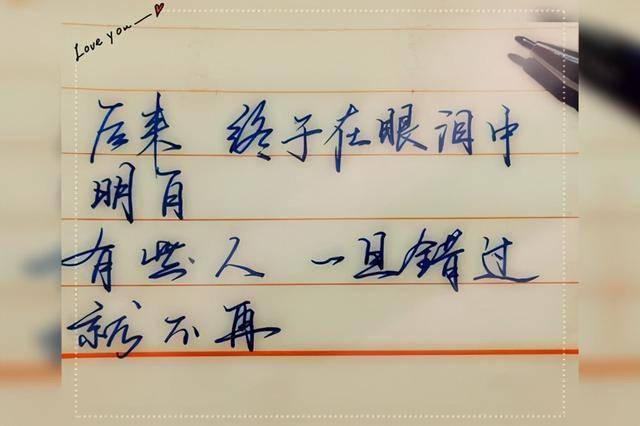 Love you
后来 终于在眼泪中
明白
有些人 一旦错过
就不再